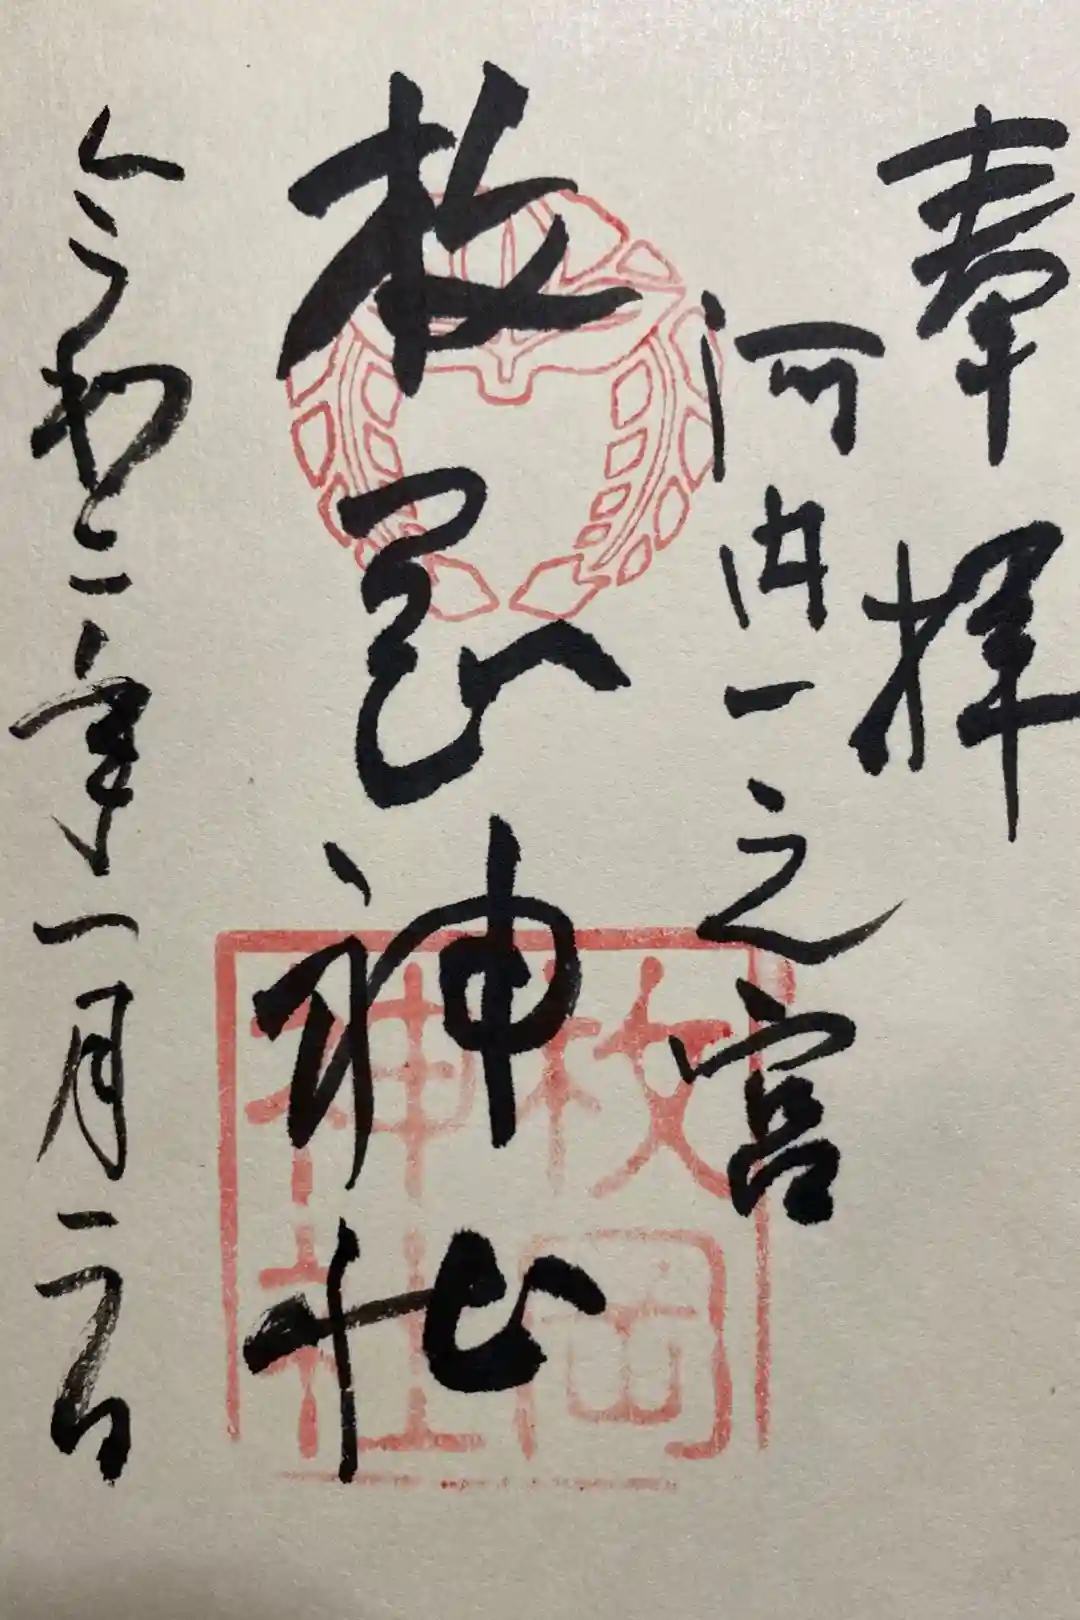 奉拝
河内一之宮
枚岡神社
枚岡
神社
令和二年一月二日